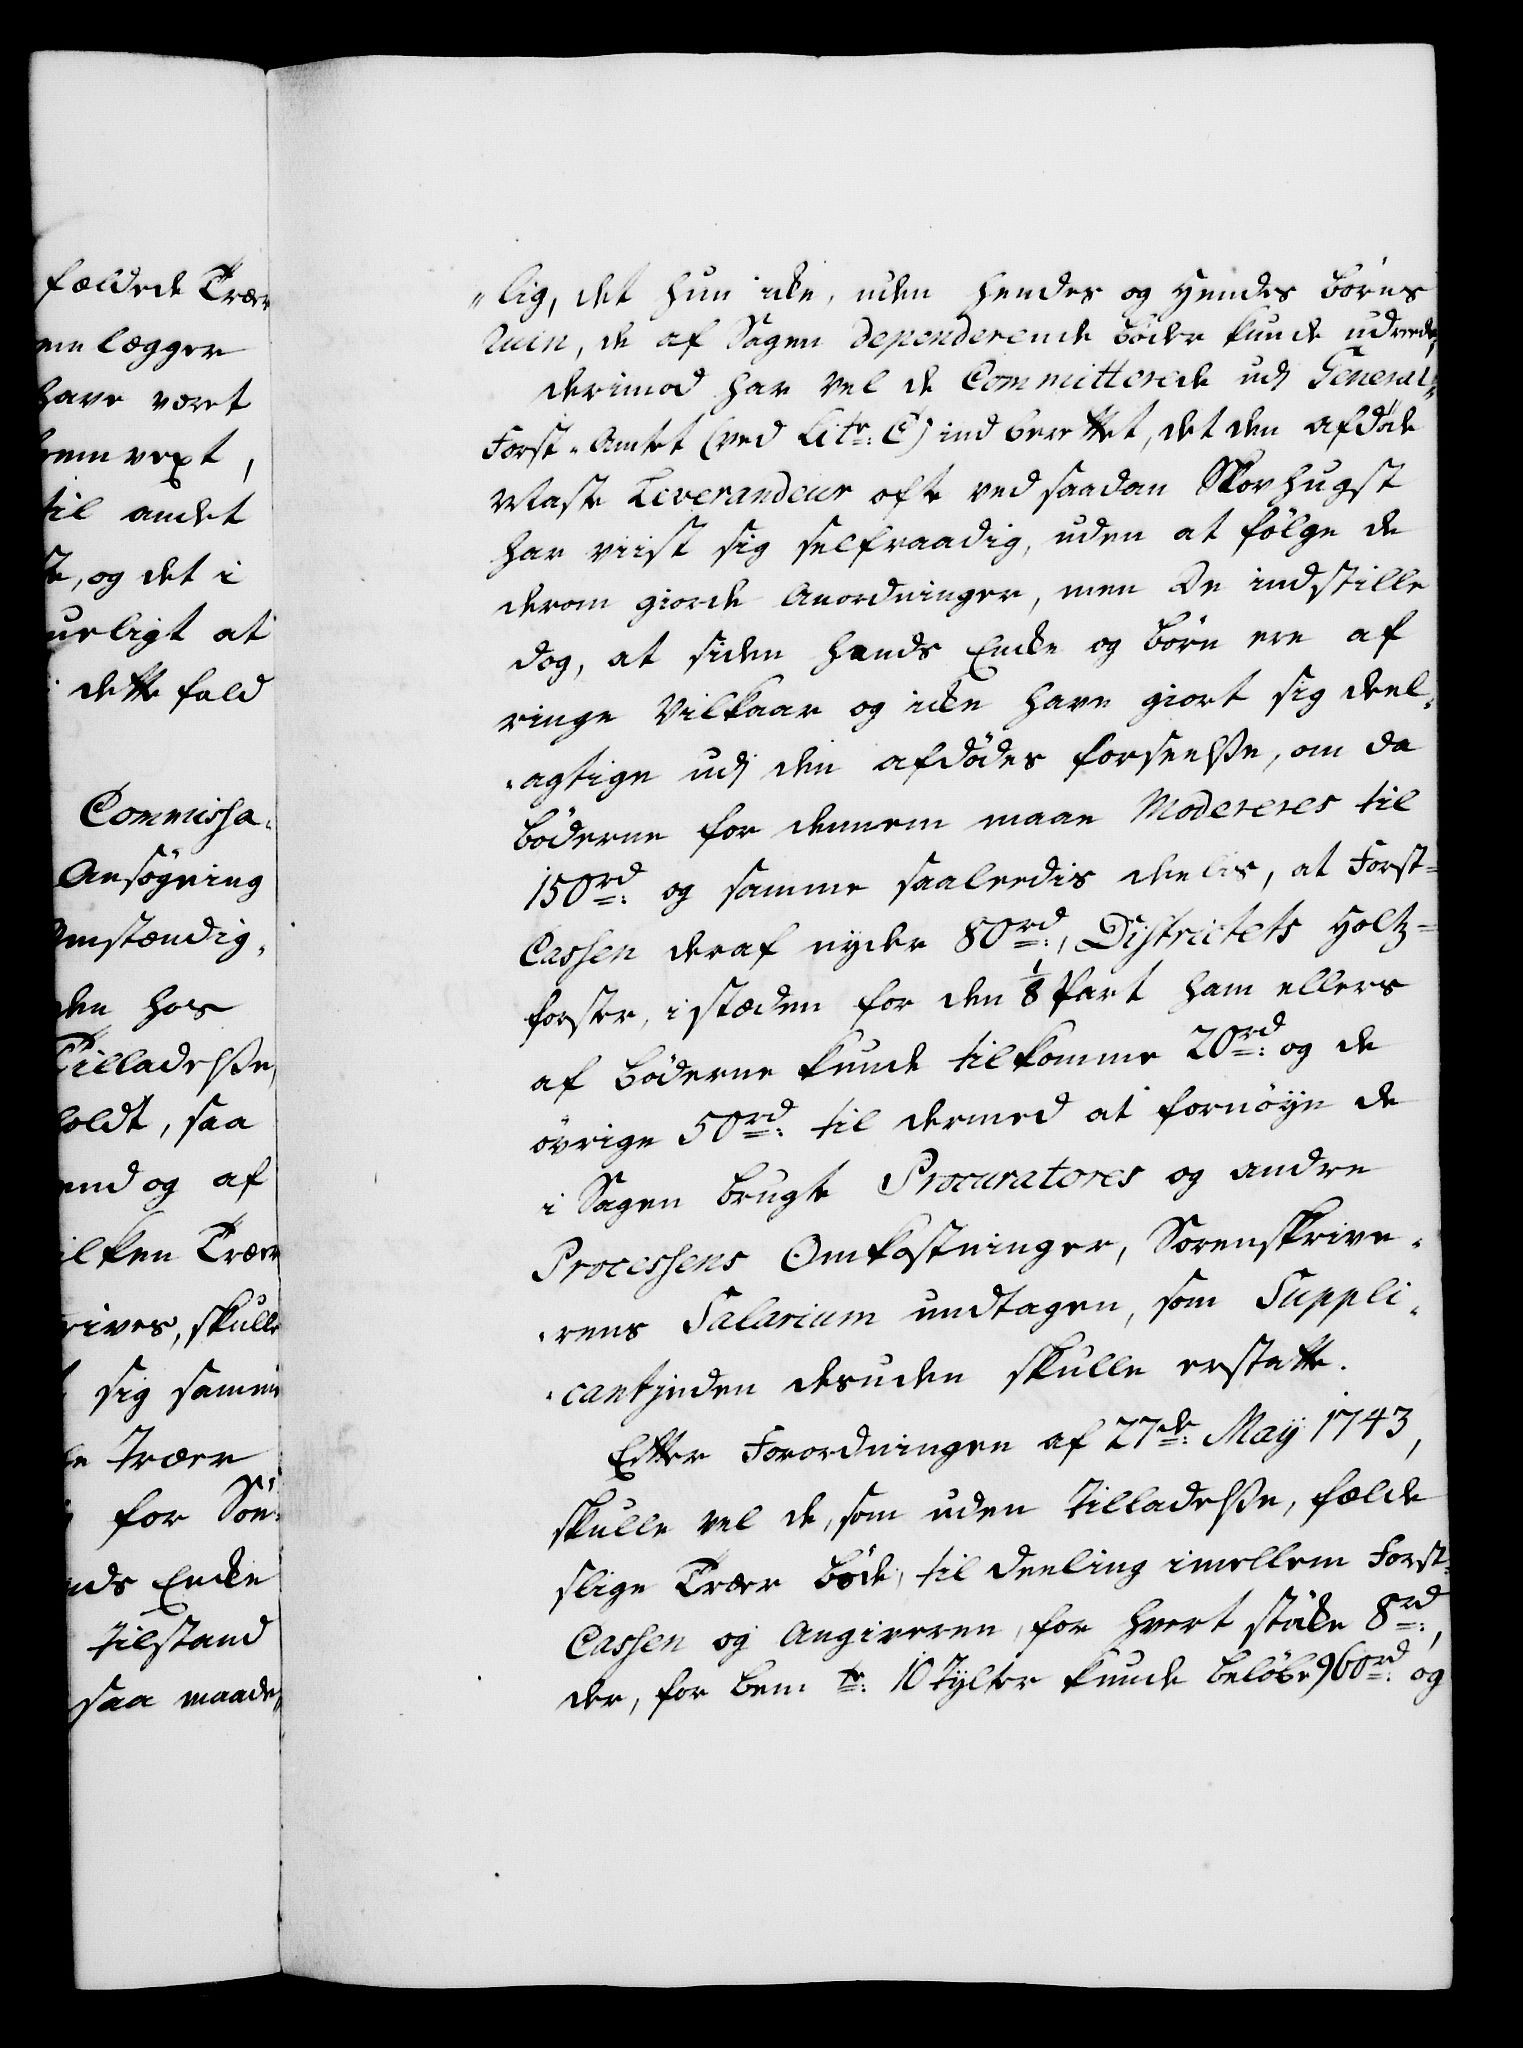 fældede Træer
em lægger
have været
fremvext,
til andet
te, og det i
ueligt at
i dette fald
Commissa-
Ansøgning
Omstændig-
den hos
Tilladelsse,
holdt, saa
end og af
ilken Træer
rives, skulle
t sig samme
de Træer
for Sön-
nds Encke
tilstand
saa maade,
"lig, det hun icke, uden hendes og Hendes börns
Ruin, de af Sagen dependerende böder kunde udreede,
derimod har vel de Committerede udj General-
Forst-Amtet (ved Litr: C) ind berettet, det den afdöde
Maste Leverandeur ofte ved saadan Skovhugst
har viist sig selfraadig, uden at fölge de
derom giorde Anordninger, men De indstille
dog, at siden hands Encke og börn ere af
ringe Vilkaar og icke have giort sig deel-
-agtige udj den afdödes forseelsse, om da
böderne for dennem maae Modereres til
150rd: og samme saaleedis deelis, at Forst-
Cassen deraf nyder 80rd:, Districtets Holtz-
forster, i stæden for den 1/8 Part ham ellers
af böderne kunde tilkomme 20rd: og de
övrige 50rd: til dermed at fornöye de
i Sagen brugte Procuratores og andre
Processens Omkostninger, Sorenskrive-
-rens Salarium undtagen, som Suppli-
-cantinden desuden skulle erstatte.
Efter Forordningen af 27de: Maÿ 1743,
skulle vel de, som uden Tilladelsse, fælde
slige Træer böde, til deeling imellem Forst-
Cassen og Angiveren, for hvert stöcke 8rd:,
der, for bemte: 10 Tylter kunde belöbe 960rd: og